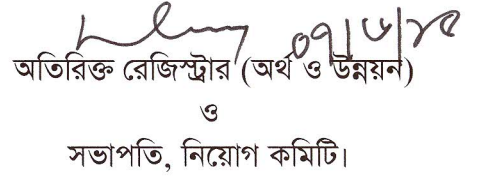 ০৭/৮/২৫
অতিরিক্ত রেজিস্ট্রার (অর্থ ও উন্নয়ন)
ও
সভাপতি, নিয়োগ কমিটি।